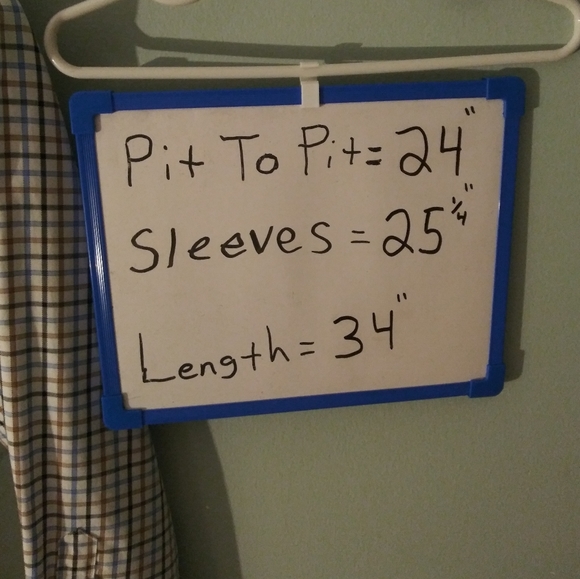 Pit To Pit= 24"
Sleeves = 25 1/4"
Length = 34"